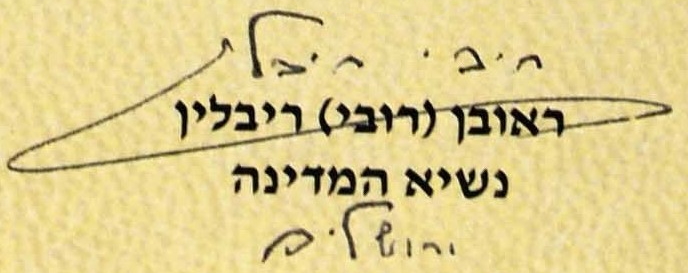 רובי ריבלין
ראובן (רובי) ריבלין
נשיא המדינה
ירושלים